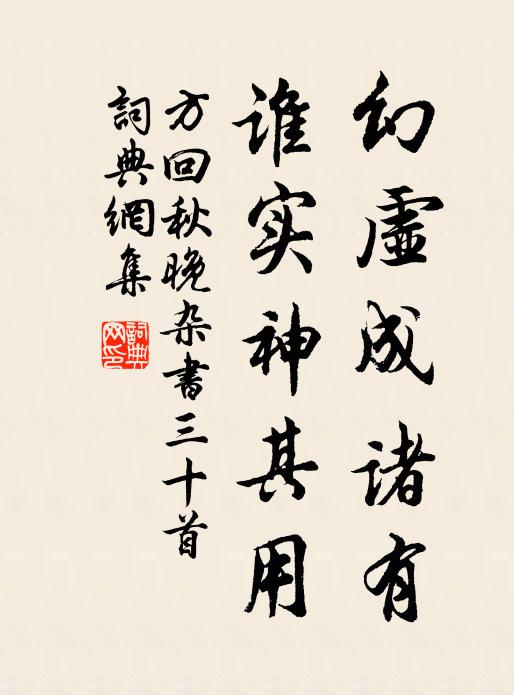 幻虛成诸有
谁实神其用
方回秋晚杂書三十首
詞典網集
詞典网印